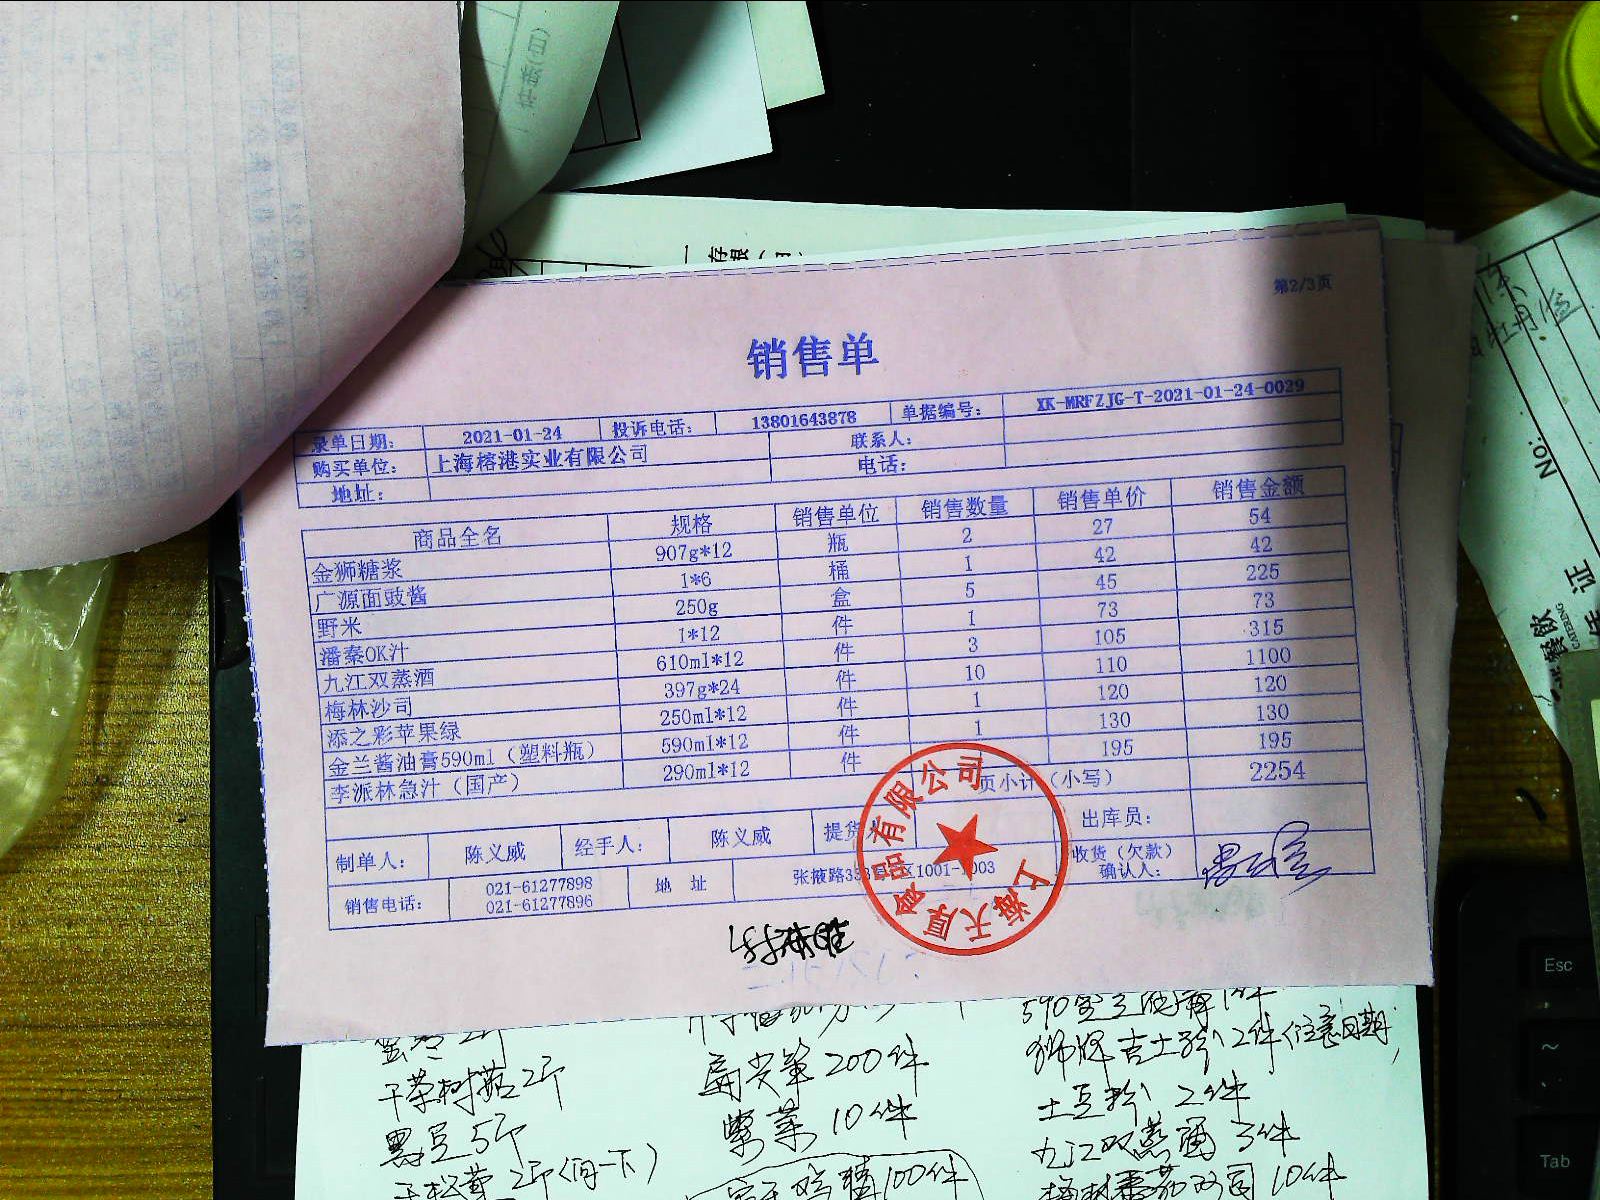 第2/3页
销售单
录单日期： 2021-01-24 投诉电话： 13801643878 单据编号： XK-MRFZJG-T-2021-01-24-0029
购买单位： 上海榕港实业有限公司 联系人：
地址： 电话：
商品全名 规格 销售单位 销售数量 销售单价 销售金额
金狮糖浆 907g*12 瓶 2 27 54
广源面豉酱 1*6 桶 1 42 42
野米 250g 盒 5 45 225
潘秦OK汁 1*12 件 1 73 73
九江双蒸酒 610ml*12 件 3 105 315
梅林沙司 397g*24 件 10 110 1100
添之彩苹果绿 250ml*12 件 1 120 120
金兰酱油膏590ml（塑料瓶） 590ml*12 件 1 130 130
李派林急汁（国产） 290ml*12 件 195 195
页小计（小写） 2254
制单人： 陈义威 经手人： 陈义威 提货人 出库员：
销售电话： 021-61277898 地 址 张掖路333 区1001-1003 收货（欠款）
021-61277896 确认人：
上海天厚食品有限公司
干茶树菇2斤
黑豆5斤
扁尖笋200件
紫菜10件
土豆粉2件
九江双蒸酒3件
No:
证
餐饮
CATERING
Esc
Tab